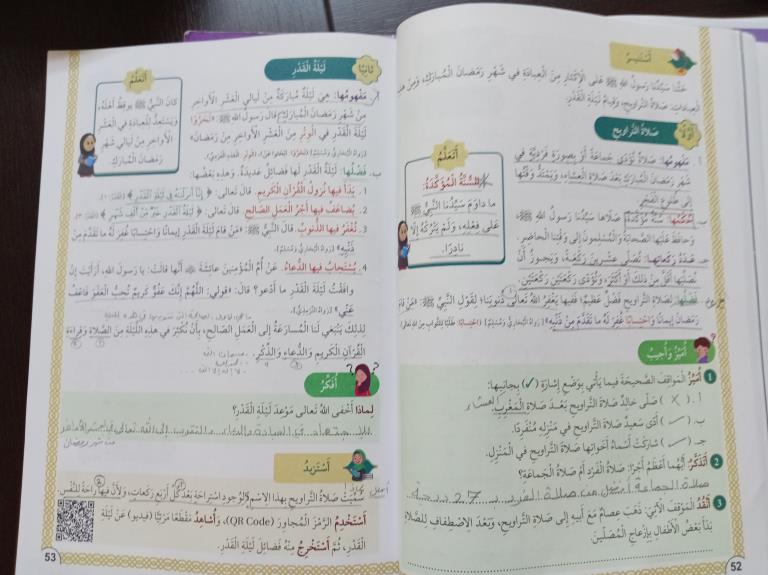 أَسْتَنيرُ
حَثَّنا سَيِّدُنا رَسولُ اللهِ ﷺ عَلى الْإِكْثارِ مِنَ الْعِبادَةِ في شَهْرِ رَمَضانَ الْمُبارَكِ، وَمِنْ
الْعِباداتِ: صَلاةُ التَّراويحِ، وَقِيامُ لَيْلَةِ الْقَدْرِ.
أَوَّلًا صَلاةُ التَّراويحِ
أ. مَفْهومُها: صَلاةٌ تُؤَدّى جَماعَةً أَوْ بِصورَةٍ فَرْدِيَّةٍ في
شَهْرِ رَمَضانَ الْمُبارَكِ بَعْدَ صَلاةِ الْعِشاءِ، وَيَمْتَدُّ وَقْتُها
إِلى طُلوعِ الْفَجْرِ.
ب. حُكْمُها: سُنَّةٌ مُؤَكَّدَةٌ، صَلّاها سَيِّدُنا رَسولُ اللهِ ﷺ
وَحافَظَ عَلَيْها الصَّحابَةُ وَالْمُسْلِمونَ إِلى وَقْتِنا الْحاضِرِ.
جـ. عَدَدُ رَكَعاتِها: تُصَلّى عِشْرينَ رَكْعَةً، وَيَجوزُ أَنْ
نُصَلِّيَها أَقَلَّ مِنْ ذلِكَ أَوْ أَكْثَرَ، وَتُؤَدّى رَكْعَتَيْنِ رَكْعَتَيْنِ.
فَضْلُها: لِصَلاةِ التَّراويحِ فَضْلٌ عَظيمٌ؛ فَفيها يَغْفِرُ اللهُ تَعالى ذُنوبَنا؛ لِقَوْلِ النَّبِيِّ ﷺ: «مَنْ قامَ
رَمَضانَ إيمانًا وَاحْتِسابًا غُفِرَ لَهُ ما تَقَدَّمَ مِنْ ذَنْبِهِ» [رَواهُ الْبُخارِيُّ وَمُسْلِمٌ]
أَتَعَلَّمُ
السُّنَّةُ الْمُؤَكَّدَةُ:
ما داوَمَ سَيِّدُنا النَّبِيُّ ﷺ
عَلى فِعْلِهِ، وَلَمْ يَتْرُكْهُ إِلّا
نادِرًا.
أُمَيِّزُ وَأُجيبُ
1 أُمَيِّزُ الْمَواقِفَ الصَّحيحَةَ فيما يَأْتي بِوَضْعِ إِشارَةِ (✓) بِجانِبِها:
أ. ( X ) صَلّى خالِدٌ صَلاةَ التَّراويحِ بَعْدَ صَلاةِ الْمَغْرِبِ. العشاء
ب. ( ✓ ) أَدّى سَعيدٌ صَلاةَ التَّراويحِ في مَنْزِلِهِ مُنْفَرِدًا.
جـ. ( ✓ ) شارَكَتْ أَسْماءُ أَخَواتِها صَلاةَ التَّراويحِ في الْمَنْزِلِ.
2 أَتَذَكَّرُ: أَيُّهُما أَعْظَمُ أَجْرًا: صَلاةُ الْفَرْدِ أَمْ صَلاةُ الْجَماعَةِ؟
صلاة الجماعة أفضل من صلاة الفرد بـ 27 درجة
3 أَنْقُدُ الْمَوْقِفَ الْآتِيَ: ذَهَبَ عِصامٌ مَعَ أَبيهِ إِلى صَلاةِ التَّراويحِ، وَبَعْدَ الِاصْطِفافِ لِلصَّلاةِ
بَدَأَ بَعْضُ الْأَطْفالِ بِإِزْعاجِ الْمُصَلّينَ.
52
ثانِيًا لَيْلَةُ الْقَدْرِ
أ. مَفْهومُها: هِيَ لَيْلَةٌ مُبارَكَةٌ مِنْ لَيالي الْعَشْرِ الْأَواخِرِ
مِنْ شَهْرِ رَمَضانَ الْمُبارَكِ، قالَ رَسولُ اللهِ ﷺ: «تَحَرَّوْا
لَيْلَةَ الْقَدْرِ في الْوِتْرِ مِنَ الْعَشْرِ الْأَواخِرِ مِنْ رَمَضانَ»
[رَواهُ الْبُخارِيُّ وَمُسْلِمٌ]
أَتَعَلَّمُ
كانَ النَّبِيُّ ﷺ يوقِظُ أَهْلَهُ،
وَيَسْتَعِدُّ لِلْعِبادَةِ في الْعَشْرِ
الْأَواخِرِ مِنْ لَيالي شَهْرِ
رَمَضانَ الْمُبارَكِ.
ب. فَضْلُها: لَيْلَةُ الْقَدْرِ لَها فَضائِلُ عَديدَةٌ، وَهذِهِ بَعْضُها:
1. بَدَأَ فيها نُزولُ الْقُرْآنِ الْكَريمِ. قالَ تَعالى: ﴿إِنَّا أَنزَلْنَٰهُ فِي لَيْلَةِ ٱلْقَدْرِ﴾
2. يُضاعَفُ فيها أَجْرُ الْعَمَلِ الصّالِحِ. قالَ تَعالى: ﴿لَيْلَةُ ٱلْقَدْرِ خَيْرٌ مِّنْ أَلْفِ شَهْرٍ﴾
3. تُغْفَرُ فيها الذُّنوبُ. قالَ النَّبِيُّ ﷺ: «مَنْ قامَ لَيْلَةَ الْقَدْرِ إيمانًا وَاحْتِسابًا غُفِرَ لَهُ ما تَقَدَّمَ مِنْ
ذَنْبِهِ» [رَواهُ الْبُخارِيُّ وَمُسْلِمٌ].
4. يُسْتَجابُ فيها الدُّعاءُ. عَنْ أُمِّ الْمُؤْمِنينَ عائِشَةَ أَنَّها قالَتْ: يا رَسولَ اللهِ، أَرَأَيْتَ إِنْ
وافَقْتُ لَيْلَةَ الْقَدْرِ ما أَدْعو؟ قالَ: «قولي: اللَّهُمَّ إِنَّكَ عَفُوٌّ كَريمٌ تُحِبُّ الْعَفْوَ فَاعْفُ
عَنّي» [رَواهُ التِّرْمِذِيُّ].
لِذلِكَ يَنْبَغي لَنا الْمُسارَعَةُ إِلى الْعَمَلِ الصّالِحِ، بِأَنْ نُكْثِرَ في هذِهِ اللَّيْلَةِ مِنَ الصَّلاةِ وَقِراءَةِ
الْقُرْآنِ الْكَريمِ وَالدُّعاءِ وَالذِّكْرِ.
أُفَكِّرُ
لِماذا أَخْفى اللهُ تَعالى مَوْعِدَ لَيْلَةِ الْقَدْرِ؟
من شهر رمضان
أَسْتَزيدُ
سُمِّيَتْ صَلاةُ التَّراويحِ بِهذا الِاسْمِ؛ لِوُجودِ اسْتِراحَةٍ بَعْدَ كُلِّ أَرْبَعِ رَكَعاتٍ، وَلِأَنَّ فيها راحَةً لِلنَّفْسِ.
أَسْتَخْدِمُ الرَّمْزَ الْمُجاوِرَ (QR Code)، وَأُشاهِدُ مَقْطَعًا مَرْئِيًّا (فيديو) عَنْ لَيْلَةِ
الْقَدْرِ، ثُمَّ أَسْتَخْرِجُ مِنْهُ فَضائِلَ لَيْلَةِ الْقَدْرِ.
53